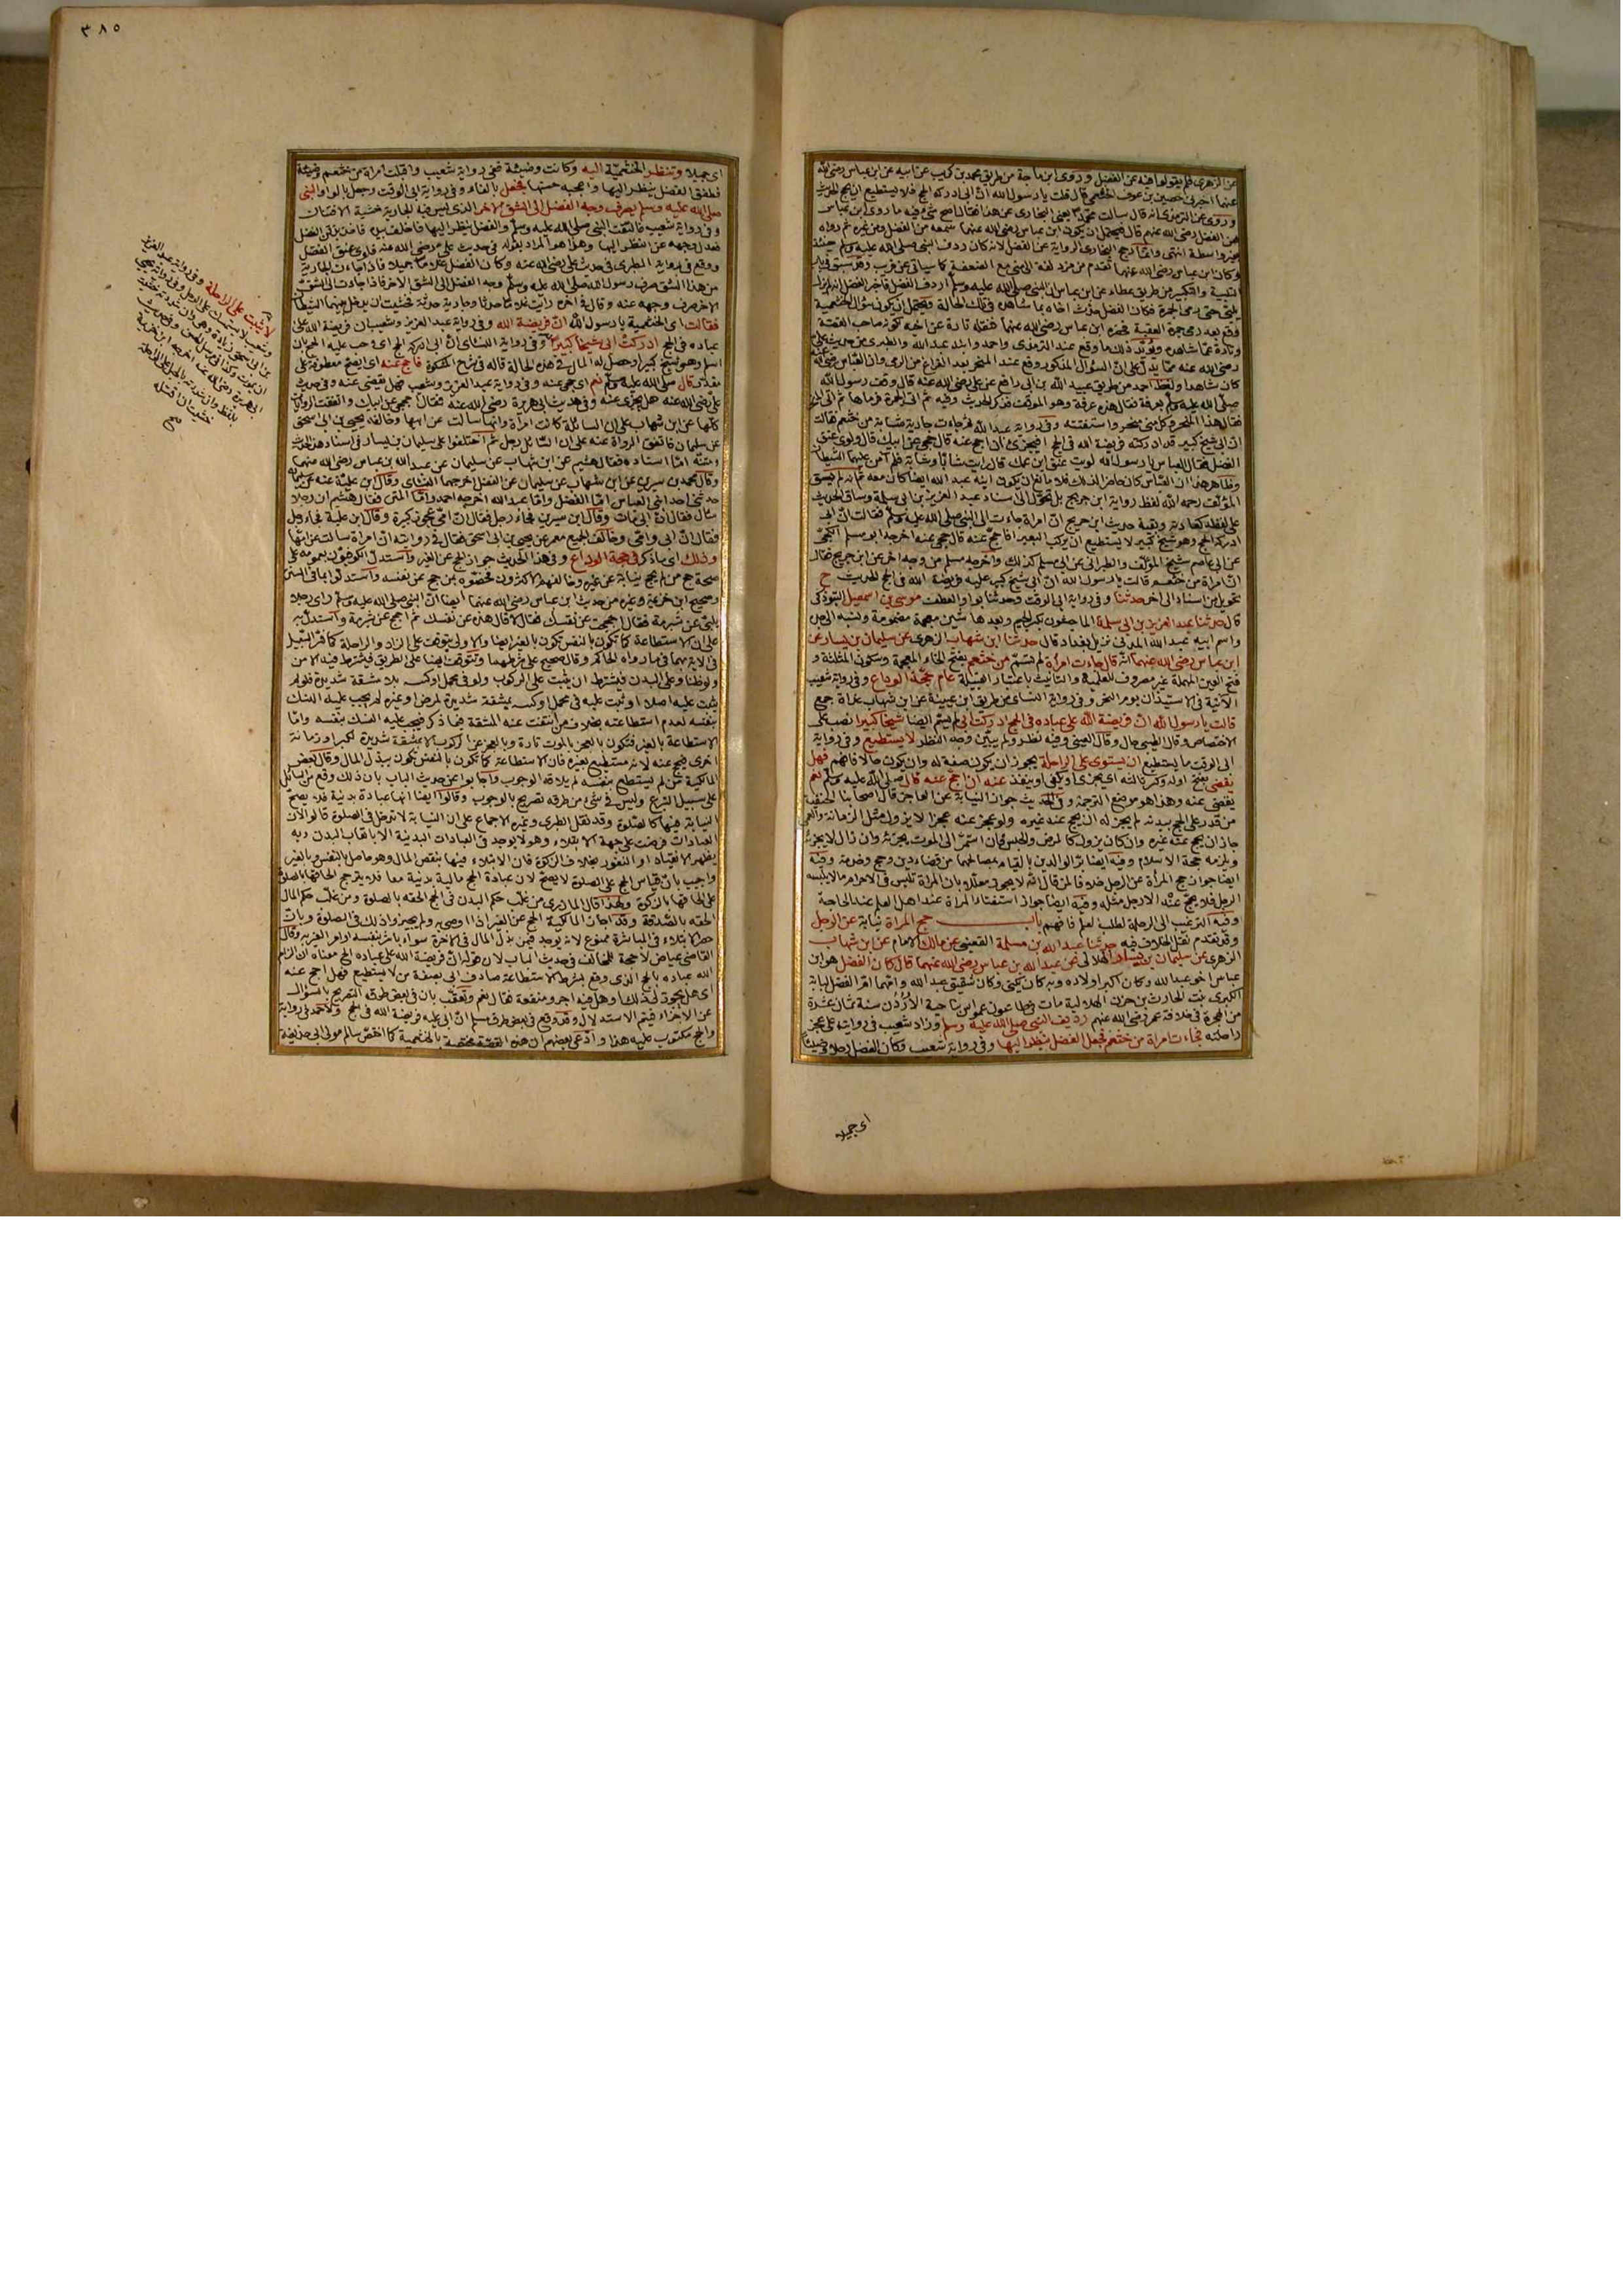 عن الزهري فلم يقولوا فيه عن الفضل وروى ابن ماجة من طريق محمد بن كريب عن ابيه عن ابن عباس رضى الله
عنهما اخبرنى حصين بن عوف الخثعمي قال قلت يا رسول الله ان ابى ادركه الحج فلا يستطيع ان يحج الحديث
وروى عن الترمذي انه قال سالت محمدا يعنى البخاري عن هذا فقال اصح شئ فيه ما روى ابن عباس
عن الفضل رضى الله عنهم قال فيحتمل ان يكون ابن عباس رضى الله عنهما سمعه من الفضل ومن غيره ثم رواه
بغير واسطة انتهى وانما رجح البخارى الرواية عن الفضل لانه كان ردف النبى صلى الله عليه وسلم حينئذ
وكان ابن عباس رضى الله عنهما تقدم من مزدلفة الى منى مع الضعفة كما سياتى عن قريب وقد سبق فى باب
التلبية والتكبير من طريق عطاء عن ابن عباس ان النبى صلى الله عليه وسلم اردف الفضل فاخبر الفضل انه لم يزل
يلبى حتى رمى الجمرة فكان الفضل حدث اخاه بما شاهده فى تلك الحالة ويحتمل ان يكون سؤال الخثعمية
وقع بعد رمى جمرة العقبة فحضره ابن عباس رضى الله عنهما فنقله تارة عن اخيه لكونه صاحب القصة
وتارة عما شاهده ويؤيد ذلك ما وقع عند الترمذى واحمد وابنه عبد الله والطبرى من حديث على
رضى الله عنه مما يدل على ان السؤال المذكور وقع عند المنحر بعد الفراغ من الرمى وان العباس رضى الله عنه
كان شاهدا ولفظ احمد من طريق عبيد الله بن ابى رافع عن على رضى الله عنه قال وقف رسول الله
صلى الله عليه وسلم بعرفة فقال هذه عرفة وهو الموقف فذكر الحديث وفيه ثم اتى الجمرة فرماها ثم اتى المنحر
فقال هذا المنحر وكل منى منحر واستفتته وفى رواية عبد الله ثم جاءت جارية شابة من خثعم فقالت
ان ابى شيخ كبير قد ادركته فريضة الله فى الحج افيجزئ ان احج عنه قال حجى عن ابيك قال ولوى عنق
الفضل فقال العباس يا رسول الله لويت عنق ابن عمك قال رايت شابا وشابة فلم آمن عليهما الشيطان
وظاهر هذا ان العباس كان حاضرا لذلك فلا مانع ان يكون ابنه عبد الله ايضا كان معه ثم انه لم يسق
المؤلف رحمه الله لفظ رواية ابن جريج بل تحول الى اسناد عبد العزيز بن ابى سلمة وساق الحديث
على لفظه كعادته وبقية حديث ابن جريج ان امراة جاءت الى النبى صلى الله عليه وسلم فقالت ان ابى
ادركه الحج وهو شيخ كبير لا يستطيع ان يركب البعير افاحج عنه قال حجى عنه اخرجه ابو مسلم الكجى
عن ابى عاصم شيخ المؤلف والطبرانى عن ابى مسلم كذلك واخرجه مسلم من وجه اخر عن ابن جريج فقال
ان امراة من خثعم قالت يا رسول الله ان ابى شيخ كبير عليه فريضة الله فى الحج الحديث ح
تحويل من اسناد الى اخر حدثنا وفى رواية ابى الوقت وحدثنا بواو العطف موسى بن اسمعيل التبوذكى
قال حدثنا عبد العزيز بن ابى سلمة الماجشون بكسر الجيم وبعدها شين معجمة مضمومة
واسم ابيه عبد الله المدنى نزيل بغداد قال حدثنا ابن شهاب الزهرى عن سليمان بن يسار عن
ابن عباس رضى الله عنهما انه قال جاءت امراة لم تسم من خثعم بفتح الخاء المعجمة وسكون المثلثة و
فتح العين المهملة غير مصروف للعلمية والتانيث باعتبار القبيلة عام حجة الوداع وفى رواية شعيب
الآتية فى الاستيذان يوم النحر وفى رواية النسائى من طريق ابن عيينة عن ابن شهاب غداة جمع
قالت يا رسول الله ان فريضة الله على عباده فى الحج ادركت ابى لم يسم ايضا شيخا كبيرا نصب على
الاختصاص وقال الطيبى حال وقال العينى وفيه نظر ولم يبين وجه النظر لا يستطيع وفى رواية
ابى الوقت ما يستطيع ان يستوى على الراحلة يجوز ان يكون صفة له وان يكون حالا فافهم فهل
يقضى بفتح اوله وكسر ثالثه اى يجزى او يكفى او ينفذ عنه ان احج عنه قال صلى الله عليه وسلم نعم
يقضى عنه وهذا هو موضع الترجمة وفى الحديث جواز النيابة عن العاجز قال اصحابنا الحنفية
من قدر على الحج ببدنه لم يجز له ان يحج عنه غيره ولو عجز عنه عجزا لا يزول مثل الزمانة والعمى
جاز ان يحج عنه غيره وان كان يزول كالمرض والحبس فان استمر الى الموت يجزئه وان زال لا يجزئه
ويلزمه حجة الاسلام وفيه ايضا بر الوالدين بالقيام بمصالحهما من قضاء دين وحج وخدمة وفيه
ايضا جواز حج المرأة عن الرجل خلافا لمن قال انه لا يجوز معللا بان المراة تلبس فى الاحرام ما لا يلبسه
الرجل فلا يحج عنه الا رجل مثله وفيه ايضا جواز استفتاء المراة عند اهل العلم عند الحاجة
وفيه الترغيب الى الرحلة لطلب العلم فافهم باب حج المراة نيابة عن الرجل
وقد تقدم نقل الخلاف فيه حدثنا عبد الله بن مسلمة القعنبى عن مالك الامام عن ابن شهاب
الزهرى عن سليمان بن يسار الهلالى عن عبد الله بن عباس رضى الله عنهما قال كان الفضل هو ابن
عباس اخو عبد الله وكان اكبر اولاده وبه كان يكنى وكان شقيق عبد الله وامهما ام الفضل لبابة
الكبرى بنت الحارث بن حزن الهلالية مات فى طاعون عمواس بناحية الأردن سنة ثمان عشرة
من الهجرة فى خلافة عمر رضى الله عنهم رديف النبى صلى الله عليه وسلم وزاد شعيب فى روايته على عجز
راحلته فجاءت امراة من خثعم فجعل الفضل ينظر اليها وفى رواية شعيب وكان الفضل رجلا وضيئا
اى جميلا
٣٨٥
اى جميلا وتنظر الخثعمية اليه وكانت وضيئة ففى رواية شعيب واقبلت امراة من خثعم وضيئة
فطفق الفضل ينظر اليها واعجبه حسنها فجعل بالفاء وفى رواية ابى الوقت وجعل بالواو النبى
صلى الله عليه وسلم يصرف وجه الفضل الى الشق الاخر الذى ليس فيه الجارية خشية الافتتان
وفى رواية شعيب فالتفت النبى صلى الله عليه وسلم والفضل ينظر اليها فاخلف بيده فاخذ بذقن الفضل
فعدل وجهه عن النظر اليها وهذا هو المراد بقوله فى حديث على رضى الله عنه فلوى عنق الفضل
ووقع فى رواية الطبرى فى حديث على رضى الله عنه وكان الفضل غلاما جميلا فاذا جاءت الجارية
من هذا الشق صرف رسول الله صلى الله عليه وسلم وجه الفضل الى الشق الاخر فاذا جاءت الى الشق
الاخر صرف وجهه عنه وقال فى اخره رايت غلاما حدثا وجارية حدثة فخشيت ان يدخل بينهما الشيطان
فقالت اى الخثعمية يا رسول الله ان فريضة الله وفى رواية عبد العزيز وشعيب ان فريضة الله على
عباده فى الحج ادركت ابى شيخا كبيرا وفى رواية النسائى ان ابى ادركه الحج اى وجب عليه الحج بان
اسلم وهو شيخ كبير او حصل له المال فى هذه الحالة قاله فى شرح المشكوة فاحج عنه اى ايصح
قال صلى الله عليه وسلم نعم اى حجى عنه وفى رواية عبد العزيز وشعيب فهل يقضى عنه وفى حديث
على رضى الله عنه هل يجزى عنه وفى حديث ابى هريرة رضى الله عنه فقال احجج عن ابيك واتفقت الروايات
كلها عن ابن شهاب على ان السائلة كانت امراة وانها سالت عن ابيها وخالفه يحيى بن ابى اسحق
عن سليمان فاتفق الرواة عنه على ان السائل رجل ثم اختلفوا على سليمان بن يسار فى اسناد هذا الحديث
ومتنه اما اسناده فقال هشيم عن ابن شهاب عن سليمان عن عبد الله بن عباس رضى الله عنهما
وقال محمد بن سيرين عن ابن شهاب عن سليمان عن الفضل اخرجهما النسائى وقال ابن علية عنه عن سليمان
حدثنى احد ابنى العباس اما الفضل واما عبد الله اخرجه احمد واما المتن فقال هشيم ان رجلا
سال فقال ان ابى مات وقال ابن سيرين فجاء رجل فقال ان امى عجوز كبيرة وقال ابن علية فجاء رجل
فقال ان ابى وامى وخالف الجميع معمر عن يحيى بن ابى اسحق فقال فى روايته ان امراة سالت عن امها
وذلك اى ما ذكر فى حجة الوداع وفى هذا الحديث جواز الحج عن الغير واستدل الكوفيون بعمومه على
صحة حج من لم يحج نيابة عن غيره وخالفهم الاكثرون فخصوه بمن حج عن نفسه واستدلوا بما فى السنن
وصحيح ابن خزيمة وغيره من حديث ابن عباس رضى الله عنهما ايضا ان النبى صلى الله عليه وسلم راى رجلا
يلبى عن شبرمة فقال احججت عن نفسك فقال لا قال هذه عن نفسك ثم احجج عن شبرمة واستدل به
على ان الاستطاعة كما تكون بالنفس تكون بالغير ايضا والاولى يتوقف على الزاد والراحلة كما فسر السبيل
فى الاية بهما فيما رواه الحاكم وقال صحيح على شرطهما وتتوقف ايضا على الطريق فيشترط فيه الامن
ولو ظنا وعلى البدن فيشترط ان يثبت على الركوب ولو فى محمل او كنيسة بلا مشقة شديدة فلو لم
يثبت عليه اصلا او ثبت عليه فى محمل او كنيسة بمشقة شديدة لمرض او غيره لم يجب عليه النسك
بنفسه لعدم استطاعته بخلاف من انتفت عنه المشقة فيما ذكر فيجب عليه النسك بنفسه واما
الاستطاعة بالغير فتكون بالعجز بالموت تارة وبالعجز عن الركوب الا بمشقة شديدة لكبر او زمانة
اخرى فيحج عنه لانه مستطيع بغيره فان الاستطاعة كما تكون بالنفس تكون ببذل المال وقال بعض
المالكية من لم يستطع بنفسه لم يلاقه الوجوب واجابوا عن حديث الباب بان ذلك وقع من السائل
على سبيل التبرع وليس فى شئ من طرقه تصريح بالوجوب وقالوا ايضا انها عبادة بدنية فلا يصح
النيابة فيها كالصلوة وقد نقل الطبرى وغيره الاجماع على ان النيابة لا تدخل فى الصلوة قالوا لان
العبادات فرضت على جهة الابتلاء وهو لا يوجد فى العبادات البدنية الا باتعاب البدن وبه
يظهر الانقياد او النفور بخلاف الزكوة فان الابتلاء فيها بنقص المال وهو حاصل بالنفس وبالغير
واجيب بان قياس الحج على الصلوة لا يصح لان عبادة الحج مالية بدنية معا فلا يترجح الحاقها بالصلوة
على الحاقها بالزكوة ولهذا قال المازرى من غلب حكم البدن فى الحج الحقه بالصلوة ومن غلب حكم المال
الحقه بالصدقة وقد اجاز المالكية الحج عن الغير اذا اوصى به ولم يجيزوا ذلك فى الصلوة وبان
حصر الابتلاء فى المباشرة ممنوع لانه يوجد فيمن بذل المال فى الاخرة سواء باشر بنفسه او امر الغير به وقال
القاضى عياض لا حجة للمخالف فى حديث الباب لان قولها ان فريضة الله على عباده الى اخره معناه ان الزام
الله عباده بالحج الذى وقع بشرط الاستطاعة صادف ابى بصفة من لا يستطيع فهل احج عنه
اى هل يجوز لى ذلك او هل فيه اجر ومنفعة فقال نعم وتعقب بان فى بعض طرقه التصريح بالسؤال
عن الاجزاء فيتم الاستدلال وقد وقع فى بعض طرق مسلم ان ابى عليه فريضة الله فى الحج ولاحمد فى رواية
والحج مكتوب عليه هذا وادعى بعضهم ان هذه القصة مختصة بالخثعمية كما اختص سالم مولى ابى حذيفة
لا يثبت على الراحلة وفى رواية عبد العزيز
وشعيب لا يستمسك على الرحل وفى رواية يحيى
بن ابى اسحق زيادة وهى وان شددته خشيت
ان يموت وكذا فى مرسل الحسن وفى حديث
ابى هريرة رضى الله عنه اخرجه ابن خزيمة
بلفظ وان شددته بالحبل على الراحلة
خشيت ان اقتله
صح